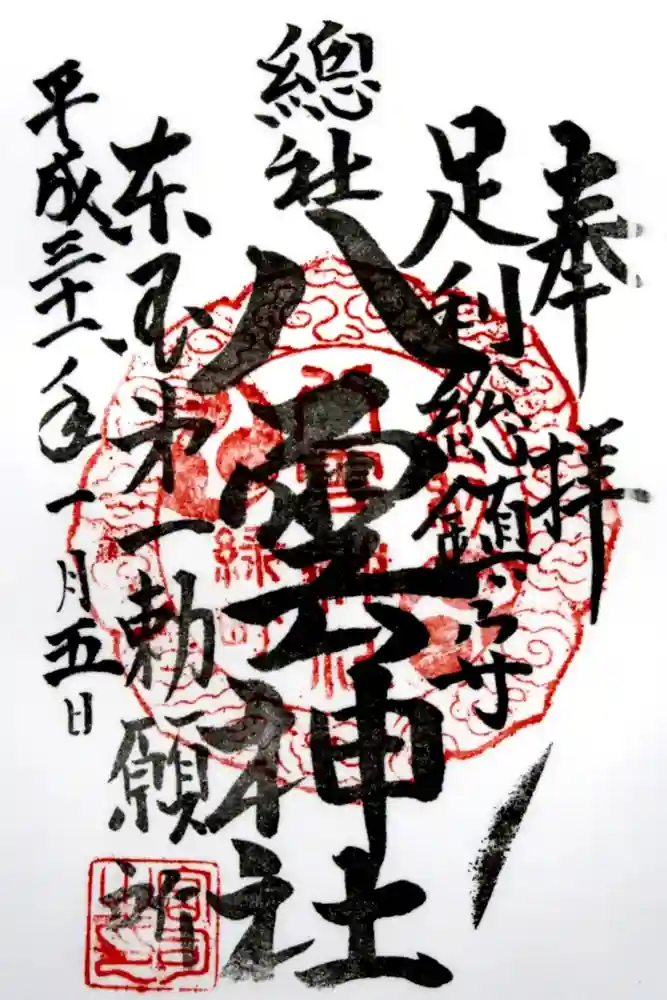 奉拝
足利総鎮守
總社
八雲神社
東国第一勅願所
平成三十一年一月五日
緑町